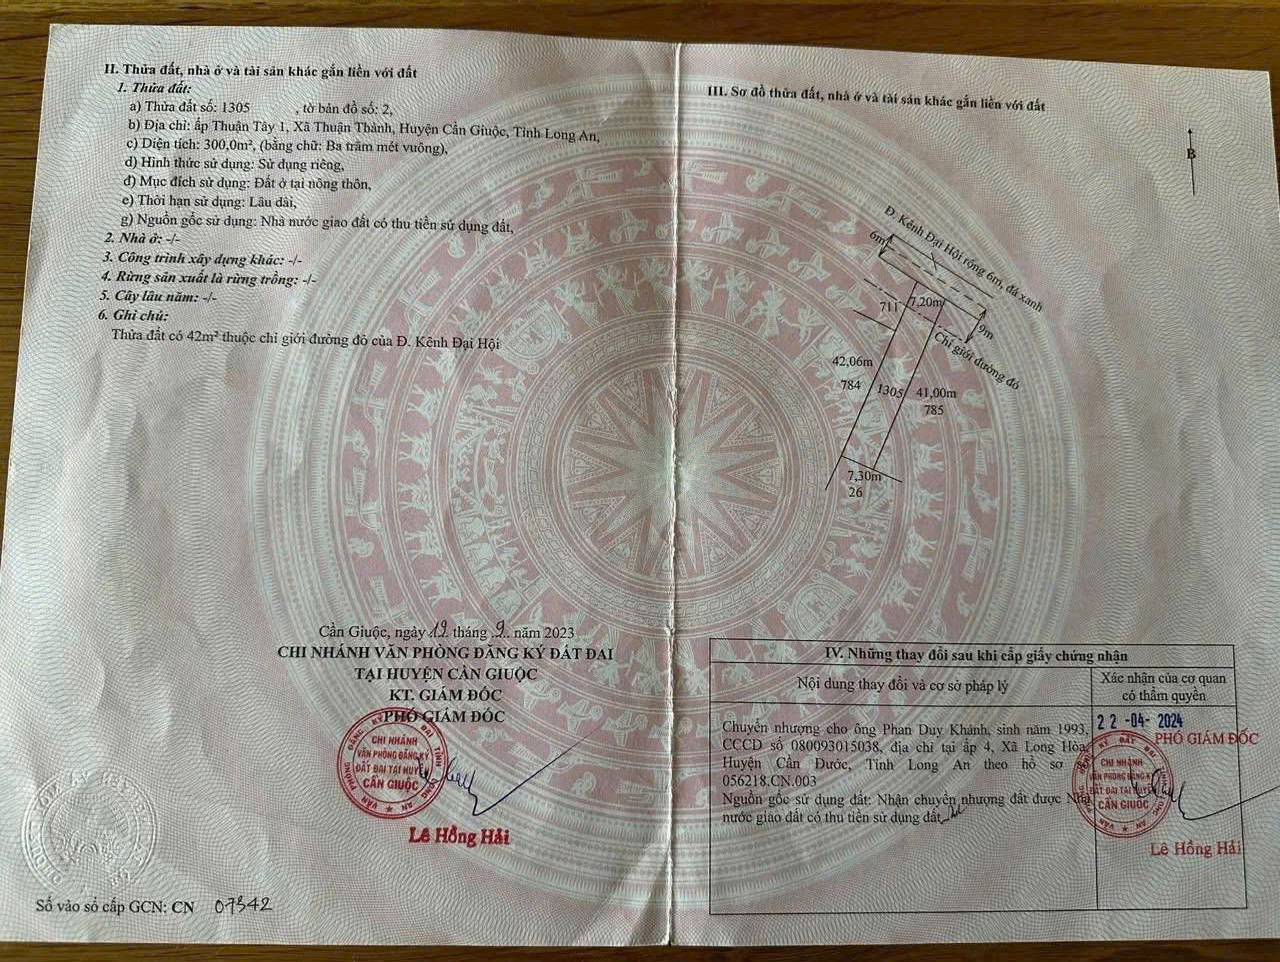 II. Thửa đất, nhà ở và tài sản khác gắn liền với đất
1. Thửa đất:
a) Thửa đất số: 1305 , tờ bản đồ số: 2,
b) Địa chỉ: ấp Thuận Tây 1, Xã Thuận Thành, Huyện Cần Giuộc, Tỉnh Long An,
c) Diện tích: 300,0m², (bằng chữ: Ba trăm mét vuông),
d) Hình thức sử dụng: Sử dụng riêng,
đ) Mục đích sử dụng: Đất ở tại nông thôn,
e) Thời hạn sử dụng: Lâu dài,
g) Nguồn gốc sử dụng: Nhà nước giao đất có thu tiền sử dụng đất,
2. Nhà ở: -/-
3. Công trình xây dựng khác: -/-
4. Rừng sản xuất là rừng trồng: -/-
5. Cây lâu năm: -/-
6. Ghi chú:
Thửa đất có 42m² thuộc chỉ giới đường đỏ của Đ. Kênh Đại Hội
Cần Giuộc, ngày 19 tháng 9 năm 2023
CHI NHÁNH VĂN PHÒNG ĐĂNG KÝ ĐẤT ĐAI
TẠI HUYỆN CẦN GIUỘC
KT. GIÁM ĐỐC
PHÓ GIÁM ĐỐC
CHI NHÁNH
VĂN PHÒNG ĐĂNG KÝ
ĐẤT ĐAI TẠI HUYỆN
CẦN GIUỘC
Lê Hồng Hải
Số vào sổ cấp GCN: CN 07542
III. Sơ đồ thửa đất, nhà ở và tài sản khác gắn liền với đất
B
Đ. Kênh Đại Hội rộng 6m, đá xanh
6m
711
7,20m
9m
Chỉ giới đường đỏ
42,06m
784
1305
41,00m
785
7,30m
26
IV. Những thay đổi sau khi cấp giấy chứng nhận
Nội dung thay đổi và cơ sở pháp lý
Xác nhận của cơ quan
có thẩm quyền
Chuyển nhượng cho ông Phan Duy Khánh, sinh năm 1993,
CCCD số 080093015038, địa chỉ tại ấp 4, Xã Long Hòa,
Huyện Cần Đước, Tỉnh Long An theo hồ sơ số
056218.CN.003
Nguồn gốc sử dụng đất: Nhận chuyển nhượng đất được Nhà
nước giao đất có thu tiền sử dụng đất
22 -04- 2024
PHÓ GIÁM ĐỐC
CHI NHÁNH
VĂN PHÒNG ĐĂNG KÝ
ĐẤT ĐAI TẠI HUYỆN
CẦN GIUỘC
Lê Hồng Hải